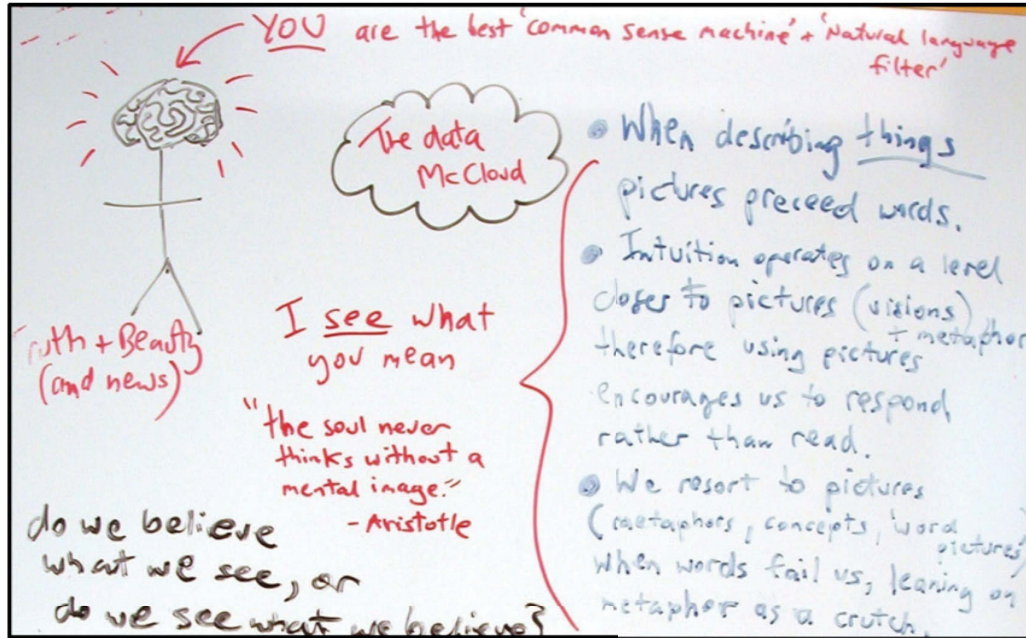 YOU are the best 'common sense machine' + 'Natural language
filter'
The data
McCloud
I see what
you mean
"the soul never
thinks without a
mental image."
- Aristotle
Truth + Beauty
(and news)
do we believe
what we see, or
do we see what we believe?
• When describing things
pictures preceed words.
• Intuition operates on a level
closer to pictures (visions)
+ metaphor
therefore using pictures
encourages us to respond
rather than read.
• We resort to pictures
(metaphors, concepts, 'word
pictures')
when words fail us, leaning on
metaphor as a crutch.